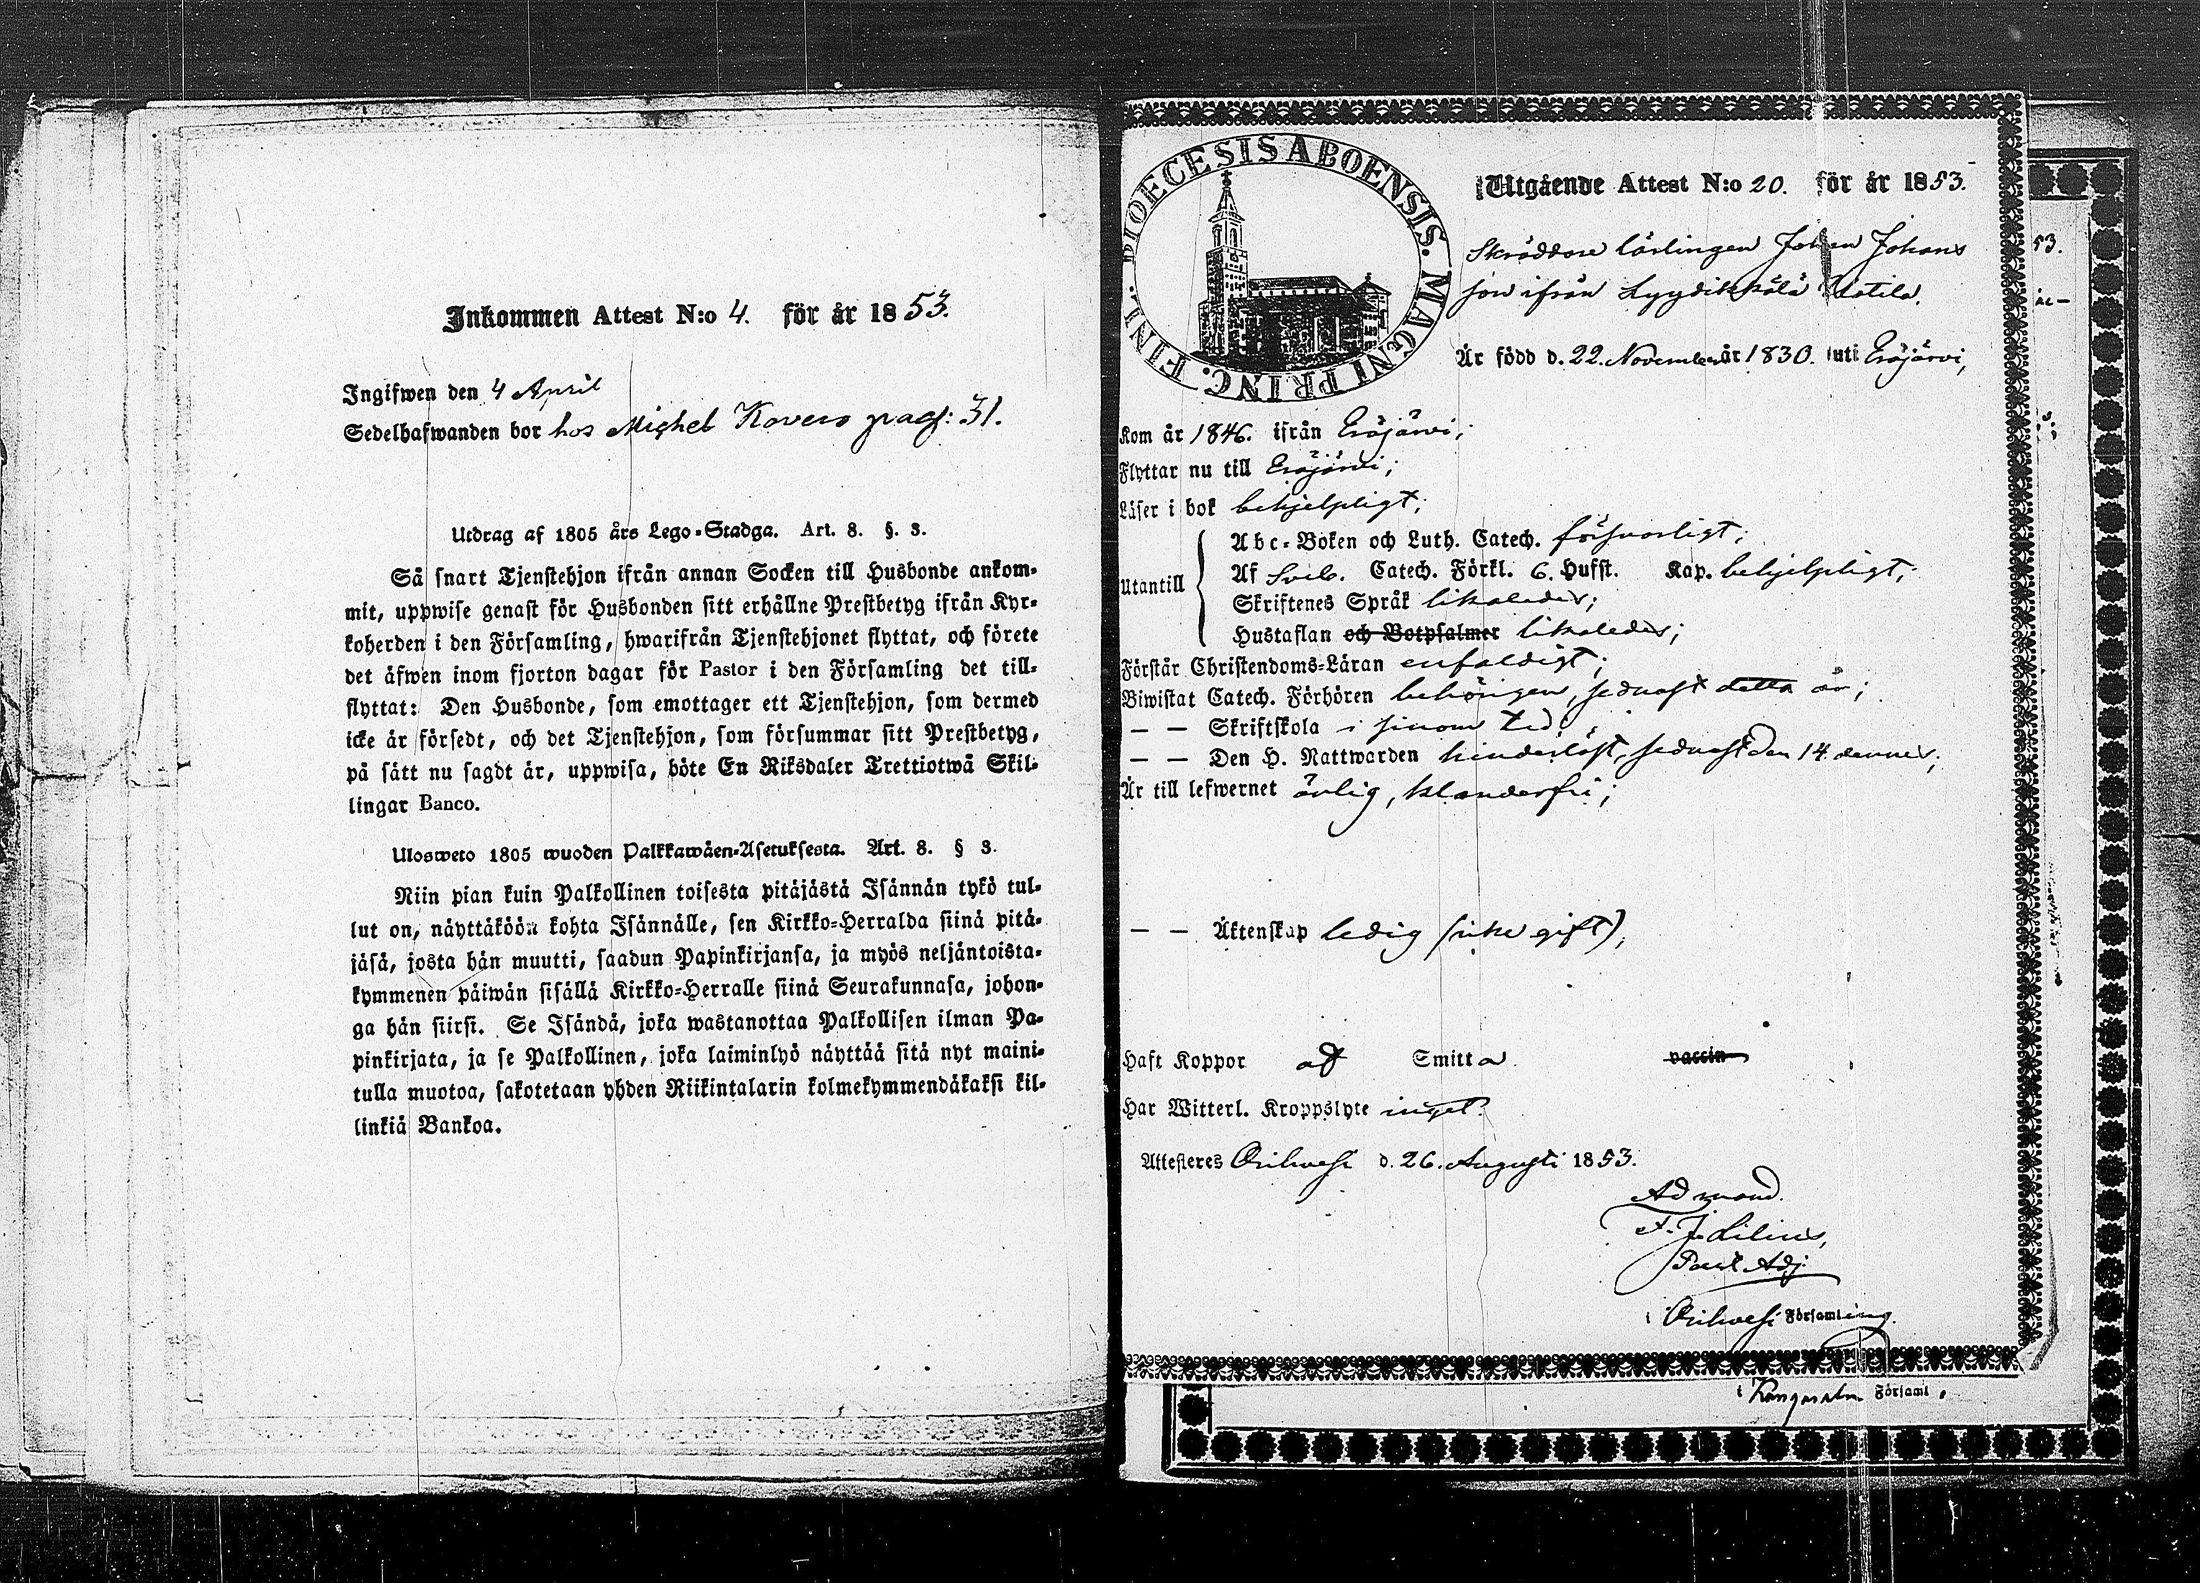 Inkommen Attest N:o 4. för år 1853.
Ingifwen den 4 April
Sedelhafwanden bor hos Michel Kovero pag: 31.
Utdrag af 1805 års Lego-Stadga. Art. 8. §. 3.
Så snart Tjenstehjon ifrån annan Socken till Husbonde ankom-
mit, uppwise genast för Husbonden sitt erhållne Prestbetyg ifrån Kyr-
koherden i den Församling, hwarifrån Tjenstehjonet flyttat, och förete
det äfwen inom fjorton dagar för Pastor i den Församling det till-
flyttat: Den Husbonde, som emottager ett Tjenstehjon, som dermed
icke är försedt, och det Tjenstehjon, som försummar sitt Prestbetyg,
på sätt nu sagdt är, uppwisa, böte En Riksdaler Trettiotwå Skil-
lingar Banco.
Ulosweto 1805 wuoden Palkkawäen-Asetuksesta. Art. 8. § 3.
Niin pian kuin Palkollinen toisesta pitäjästä Isännän tykö tul-
lut on, näyttäköön kohta Isännälle, sen Kirkko-Herralda siinä pitä-
jäsä, josta hän muutti, saadun Papinkirjansa, ja myös neljäntoista-
kymmenen päiwän sisällä Kirkko-Herralle siinä Seurakunnasa, johon-
ga hän siirsi. Se Isändä, joka wastanottaa Palkollisen ilman Pa-
pinkirjata, ja se Palkollinen, joka laiminlyö näyttää sitä nyt maini-
tulla muotoa, sakotetaan yhden Riikintalarin kolmekymmendäkaksi kil-
linkiä Bankoa.
DIOECESIS ABOENSIS. MAGNI PRINC. FINL.
Utgående Attest N:o 20. för år 1853.
Skräddare lärlingen Johan Johans
son ifrån Lyydikkälä
Är född d. 22. November år 1830. uti Eräjärvi,
Kom år 1846. ifrån Eräjärvi;
Flyttar nu till Eräjärvi;
Läser i bok behjelpligt;
Utantill
Abc-Boken och Luth. Catech. försvarligt;
Af Sveb. Catech. Förkl. 6. Hufst. Kap. behjelpligt,
Skriftenes Språk likaledes;
Hustaflan och Botpsalmer likaledes;
Förstår Christendoms-Läran enfaldigt;
Biwistat Catech. Förhören behörigen, sednast detta år;
— — Skriftskola i sinom tid;
— — Den H. Nattwarden hinderlöst, sednast den 14 dennes;
Är till lefwernet ärlig, klanderfri;
— — Äktenskap ledig (icke gift),
Haft Koppor af Smitta. vaccin
Har Witterl. Kroppslyte inget.
Attesteres Orihvesi d. 26. Augusti 1853.
Ad mand.
F. J. Lilius,
Past. Adj.
i Orihvesi Församling.
i Kangasala Församl.
53.